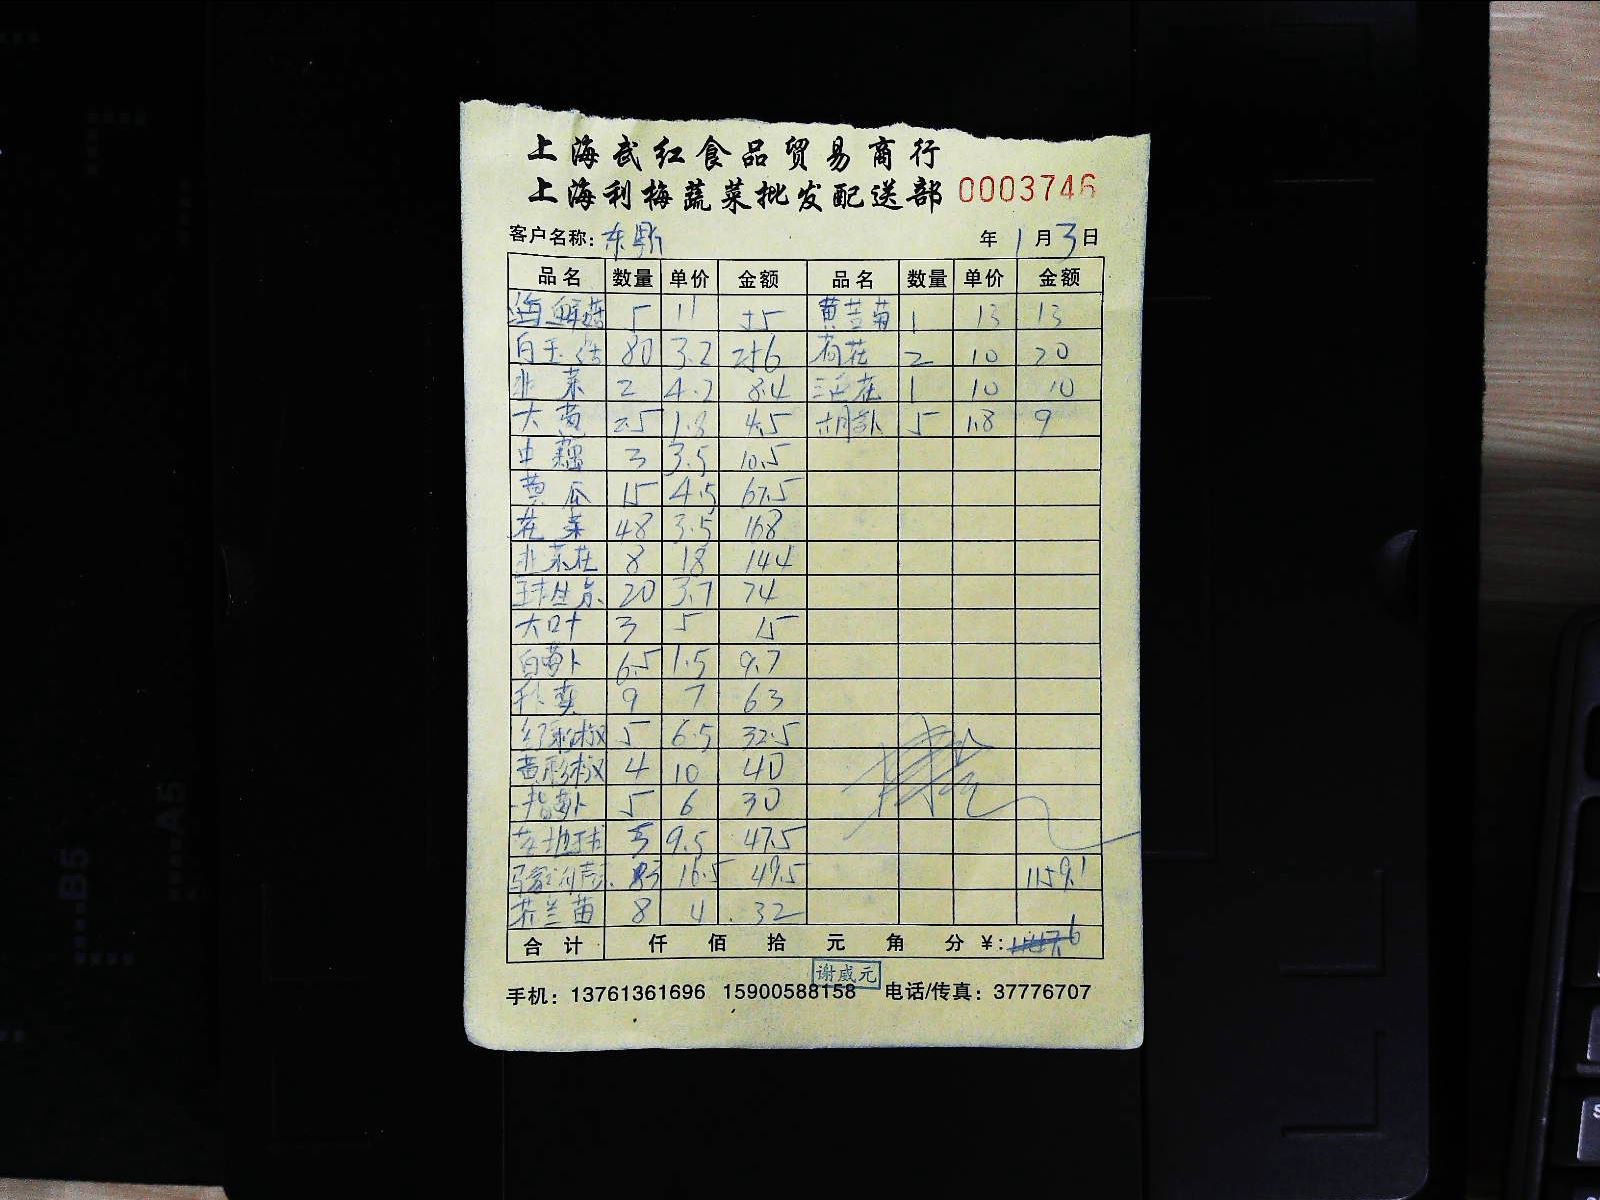 上海武红食品贸易商行
上海利梅蔬菜批发配送部 0003746
客户名称: 东 年 1 月 3 日
品名 数量 单价 金额 品名 数量 单价 金额
海鲜菇 5 11 55 黄苦菊 1 13 13
白玉菇 80 3.2 256 荷花 2 10 20
韭菜 2 4.2 8.4 1 10 10
大 2.5 1.8 4.5 胡卜 5 1.8 9
中藕 3 3.5 10.5
黄瓜 15 4.5 67.5
花菜 48 3.5 168
韭菜花 8 18 144
20 3.7 74
大叶 3 5 15
白萝卜 6.5 1.5 9.7
9 7 63
红彩椒 5 6.5 32.5
黄彩椒 4 10 40
手指萝卜 5 6 30
5 9.5 47.5
3 16.5 49.5 1159.1
芥兰苗 8 4 32
合计 仟 佰 拾 元 角 分 ¥:
谢威元
手机: 13761361696 15900588158 电话/传真: 37776707
A5
B5